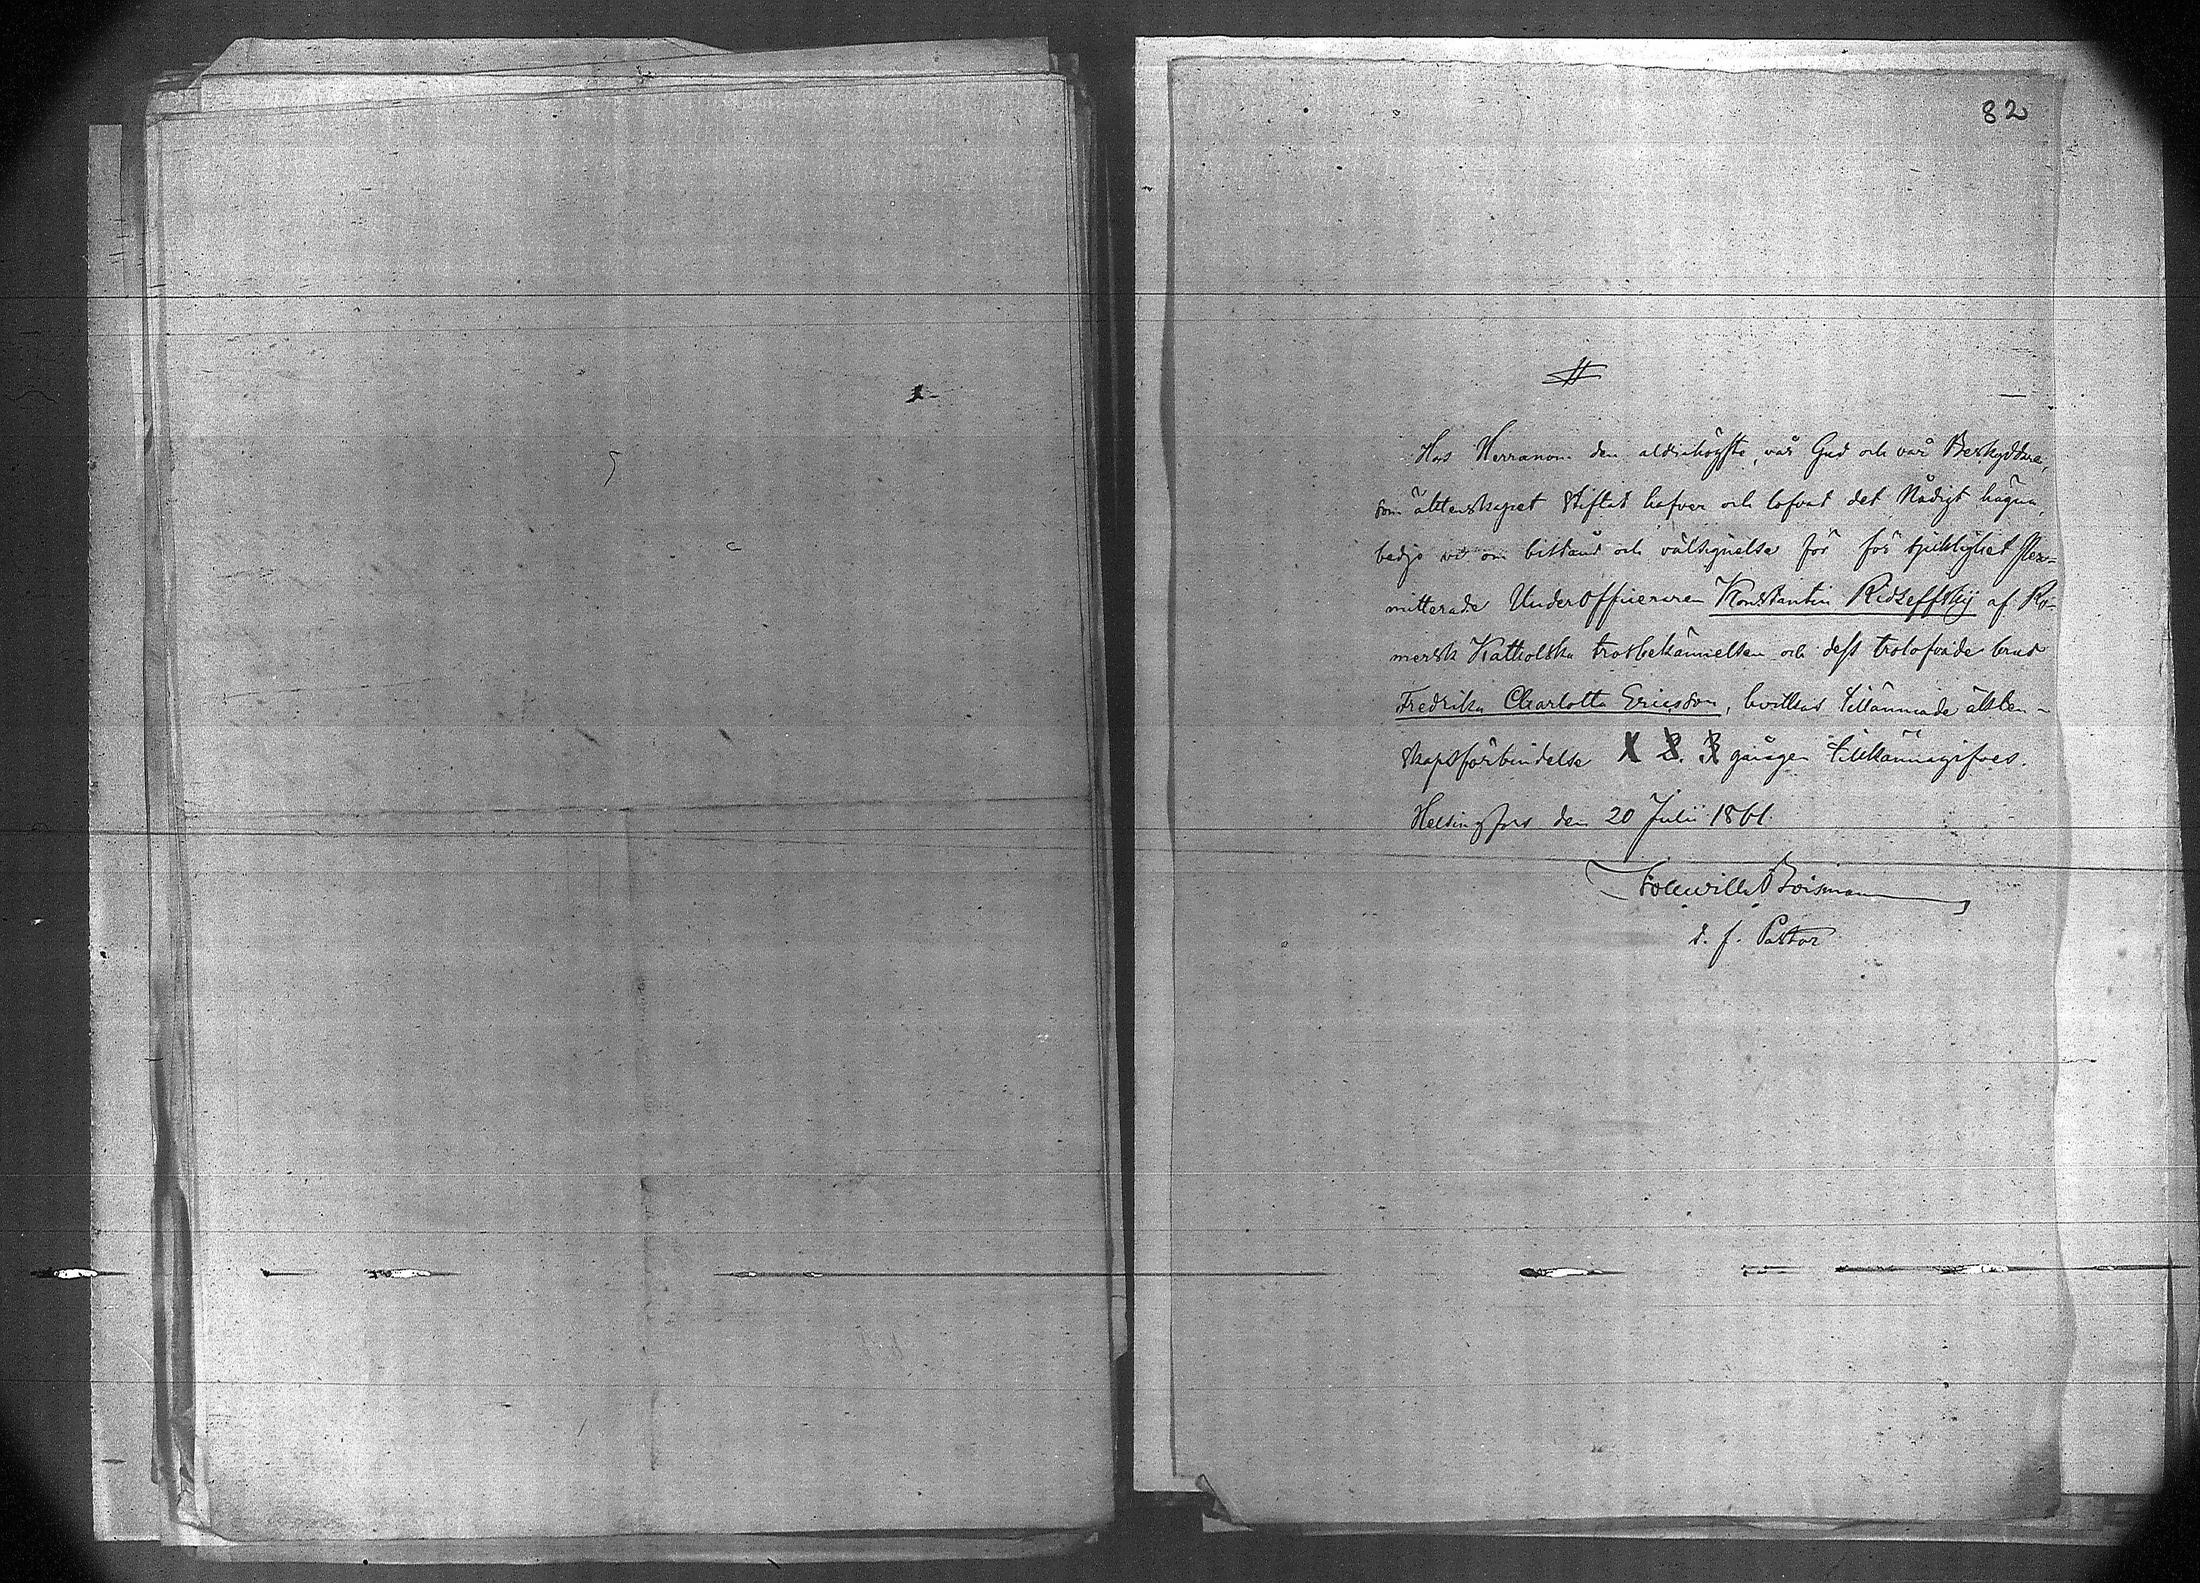 82
Hos Herranom den aldrahögste, vår Gud och vår Beskyddare,
som äktenskapet stiftat hafver och lofvat det Nådigt hägna,
bedje vi om bistånd och välsignelse för för sjuklighet Per=
mitterade Underofficeraren Konstantin Ridzeffskij af Ro=
mersk Katholska trosbekännelsen och dess trolofvade brud
Fredrika Charlotta Ericsson, hvilkas tillämnade äkten-
skapsförbindelse 1 2. 3 gången tillkännagifves.
Helsingfors den 20 Julii 1861.
Boisman
t. f. Pastor